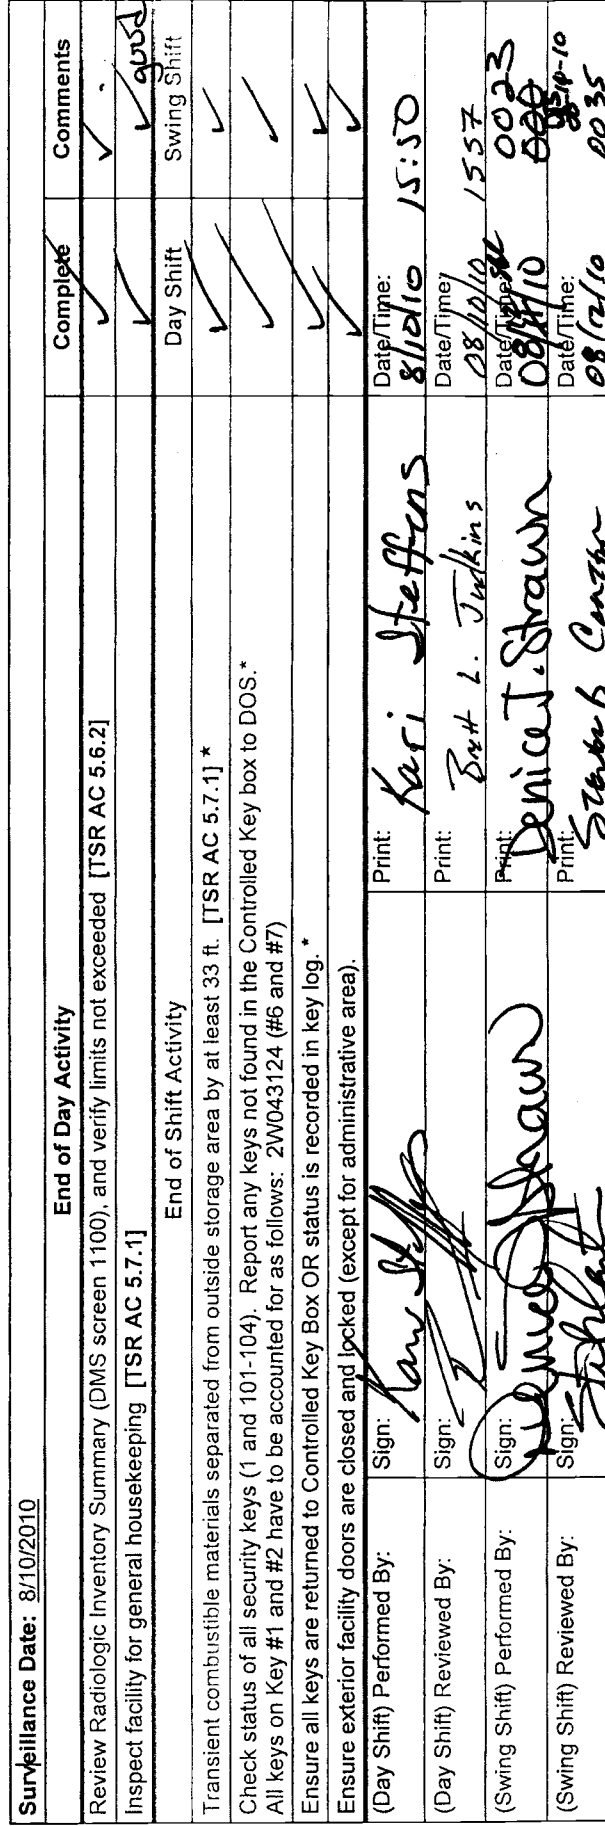 Surveillance Date: 8/10/2010
End of Day Activity Complete Comments
Review Radiologic Inventory Summary (DMS screen 1100), and verify limits not exceeded [TSR AC 5.6.2] ✓ ✓
Inspect facility for general housekeeping [TSR AC 5.7.1] ✓ ✓ good
End of Shift Activity Day Shift Swing Shift
Transient combustible materials separated from outside storage area by at least 33 ft. [TSR AC 5.7.1] * ✓ ✓
Check status of all security keys (1 and 101-104). Report any keys not found in the Controlled Key box to DOS.* ✓ ✓
All keys on Key #1 and #2 have to be accounted for as follows: 2W043124 (#6 and #7)
Ensure all keys are returned to Controlled Key Box OR status is recorded in key log.* ✓ ✓
Ensure exterior facility doors are closed and locked (except for administrative area). ✓ ✓
(Day Shift) Performed By: Sign: Print: Kari Steffens Date/Time: 8/10/10 15:50
(Day Shift) Reviewed By: Sign: Print: Brett L. Judkins Date/Time: 08/10/10 1557
(Swing Shift) Performed By: Sign: Denice J Strawn Print: Denice J. Strawn Date/Time: 0023
(Swing Shift) Reviewed By: Sign: Print: Date/Time: 08/12/10 0035